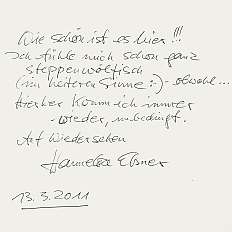 Wie schön ist es hier!!!
Ich fühle mich schon ganz
steppenwölfisch
(im heiteren Sinne :) - obwohl...
Hierher komm ich immer
wieder, unbedingt.
Auf Wiedersehen
Hannelore Elsner
13.3.2011